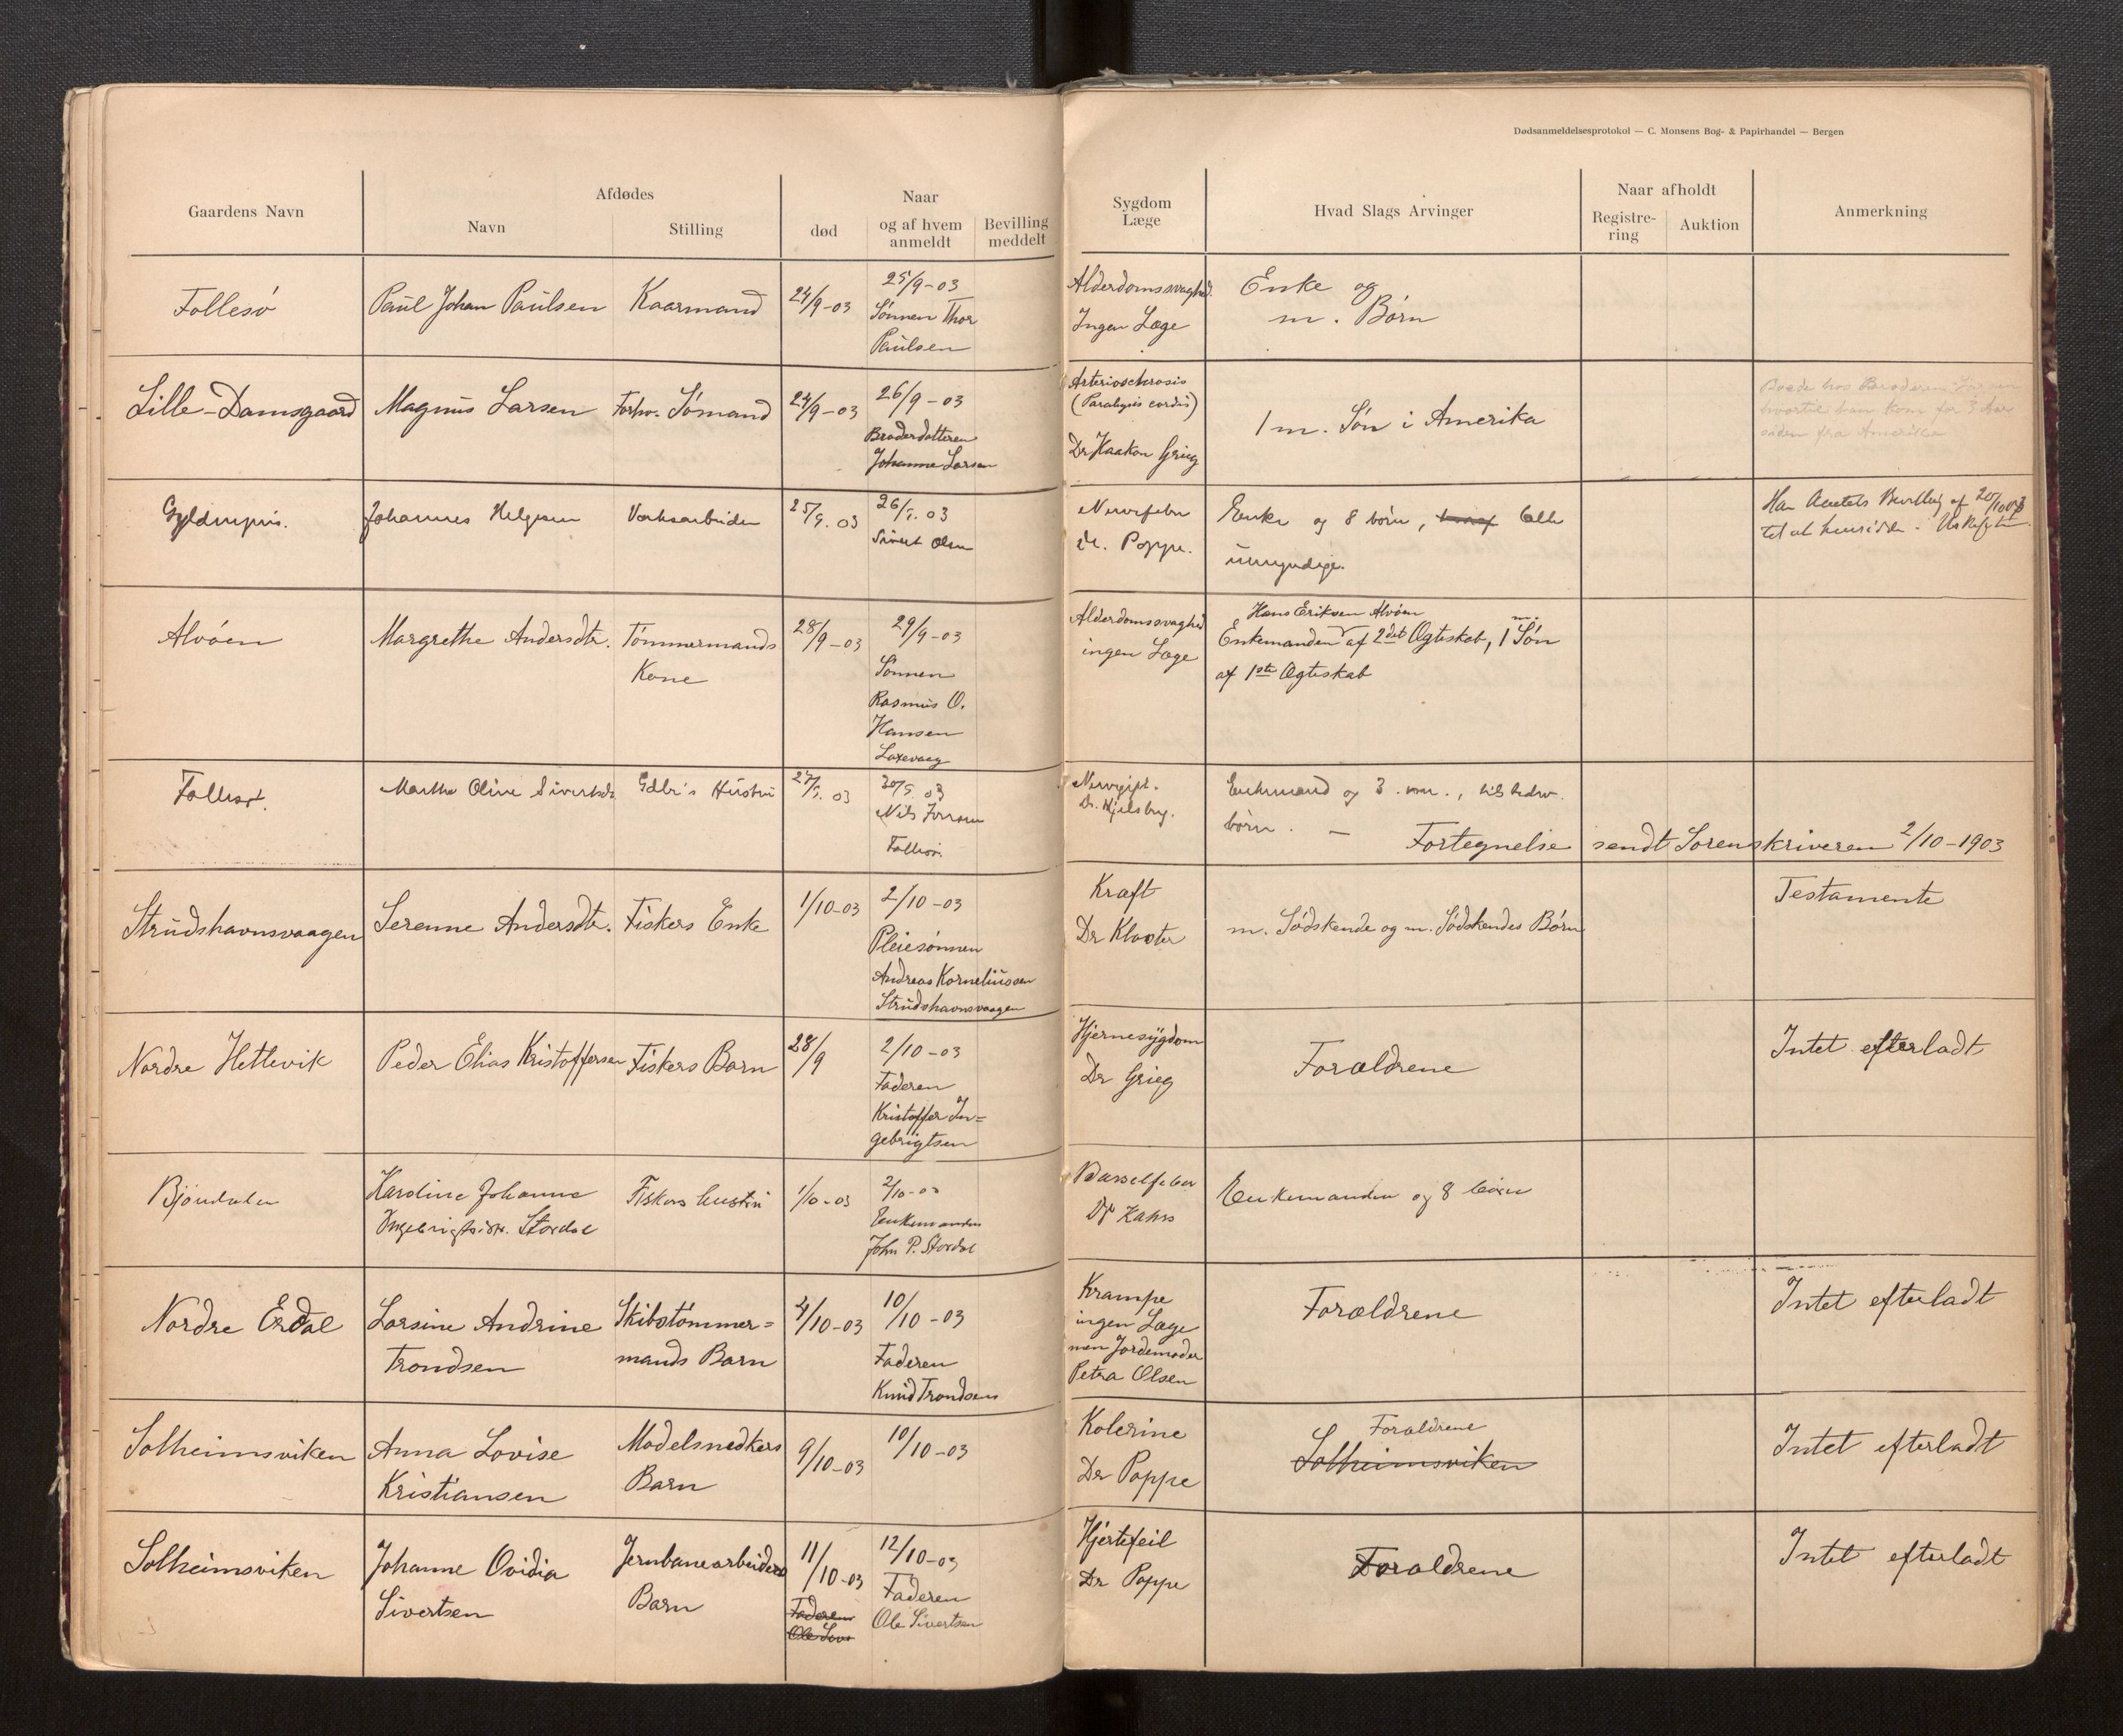 Dødsanmeldelsesprotokol — C. Monsens Bog- & Papirhandel — Bergen
Gaardens Navn
Afdødes
Navn
Stilling
Naar
død
og af hvem
anmeldt
Bevilling
meddelt
Sygdom
Læge
Hvad Slags Arvinger
Naar afholdt
Registre-
ring
Auktion
Anmerkning
Follesø
Paul Johan Paulsen
Kaarmand
24/9-03
25/9-03
Sønnen Thor
Paulsen
Alderdomssvaghed.
Ingen Læge
Enke og
m. Børn
Lille-Damsgaard
Magnus Larsen
Forhv. Sømand
24/9-03
26/9-03
Broderdatteren
Johanne Larsen
Arteriosclerosis
(Paralysis cordis)
Dr Haakon Grieg
1 m. Søn i Amerika
Boede hos Broderen Larsen
hvortil han kom for 3 Aar
siden fra Amerika
Gyldenpris.
Johannes Helgesen
Verksarbeider
25/9. 03
26/9. 03
Sivert Olsen
Nervefeber
Dr. Poppe.
Enke og 8 børn, hvoraf 6 alle
umyndige.
Har Amtets Bevilling af 20/10 03
til at hensidde i Uskiftet
Alvøen
Margrethe Andersdtr.
Tømmermands
Kone
28/9-03
29/9-03
Sønnen
Rasmus O.
Hansen
Laxevaag
Alderdomssvaghed
ingen Læge
Hans Eriksen Alvøen
Enkemanden af 2det Ægteskab, 1 m. Søn
af 1ste Ægteskab
Follesø.
Marthe Olive Sivertsdr
Gdbr's Hustru
27/9. 03
30/9. 03
Nils
Follesø.
Dr.
Enkemand og 3
børn. —
Fortegnelse sendt Sorenskriveren 2/10-1903
Strudshavnsvaagen
Serenne Andersdtr.
Fiskers Enke
1/10-03
2/10-03
Pleiesønnen
Andreas Korneliussen
Strudshavnsvaagen
Kræft
Dr Kloster
m. Sødskende og m. Sødskendes Børn
Testamente
Nordre Hettevik
Peder Elias Kristoffersen
Fiskers Barn
28/9
2/10-03
Faderen
Kristoffer In=
gebrigtsen
Hjernesygdom
Dr Grieg
Forældrene
Intet efterladt
Bjørndalen
Karoline Johanne
Ingebrigtsdtr. Stordal
Fiskers hustru
1/10-03
2/10-03
Enkemanden
John P. Stordal
Barselfeber
Dr Kahrs
Enkemanden og 8 børn
Nordre Erdal
Larsine Andrine
Trondsen
Skibstømmer=
mands Barn
4/10-03
10/10-03
Faderen
Knud Trondsen
Krampe
ingen Læge
men Jordemoder
Petra Olsen
Forældrene
Intet efterladt
Solheimsviken
Anna Lovise
Kristiansen
Modelsnedkers
Barn
9/10-03
10/10-03
Kolerine
Dr Poppe
Forældrene
Solheimsviken
Intet efterladt
Solheimsviken
Johanne Ovidia
Sivertsen
Jernbanearbeiders
Barn
11/10-03
Faderen
Ole Siver
12/10-03
Faderen
Ole Sivertsen
Hjertefeil
Dr Poppe
Forældrene
Intet efterladt